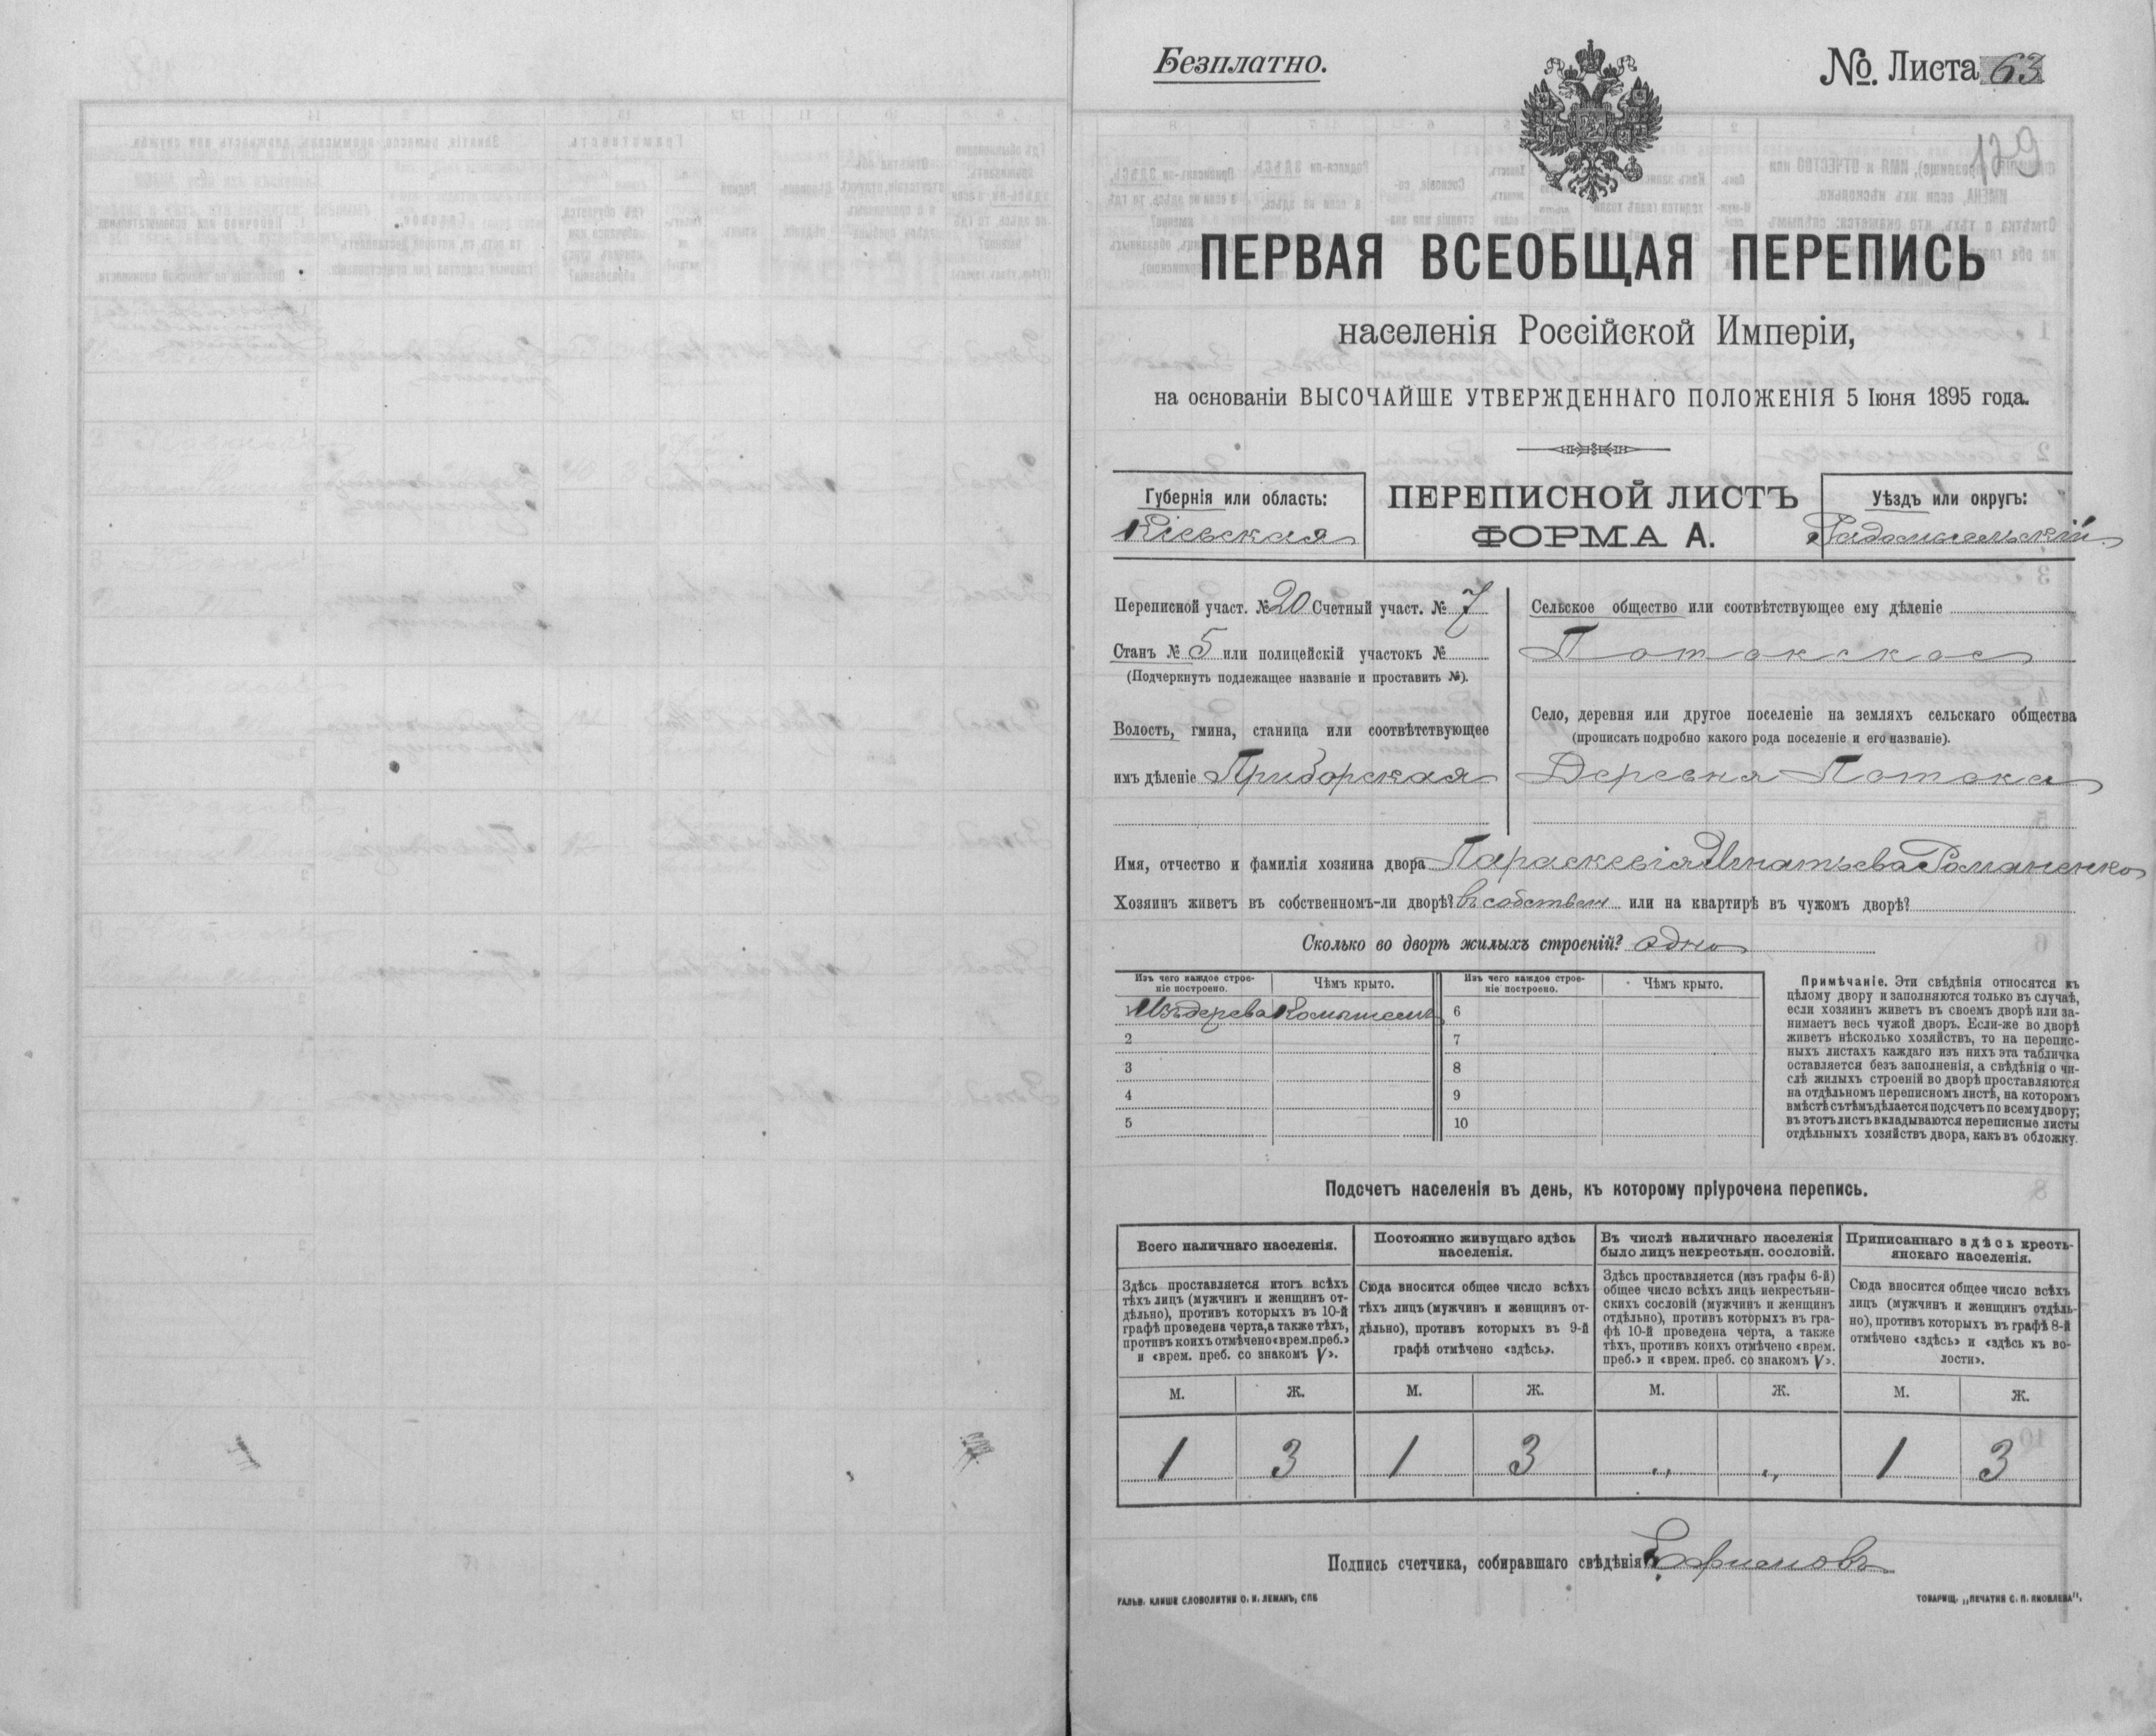 Безплатно.
№. Листа 63
129
ПЕРВАЯ ВСЕОБЩАЯ ПЕРЕПИСЬ
населенія Россійской Имперіи,
на основаніи ВЫСОЧАЙШЕ УТВЕРЖДЕННАГО ПОЛОЖЕНІЯ 5 Іюня 1895 года.
Губернія или область:
Кіевская
ПЕРЕПИСНОЙ ЛИСТЪ
ФОРМА А.
Уѣздъ или округъ:
Радомысльскій
Переписной участ. № 20 Счетный участ. № 7
Станъ № 5 или полицейскій участокъ №
(Подчеркнуть подлежащее названіе и проставить №).
Волость, гмина, станица или соотвѣтствующее
имъ дѣленіе Приборская
Сельское общество или соотвѣтствующее ему дѣленіе
Потокское
Село, деревня или другое поселеніе на земляхъ сельскаго общества
(прописать подробно какого рода поселеніе и его названіе).
Деревня Потоки
Имя, отчество и фамилія хозяина двора Параскевія Игнатьева Романенко
Хозяинъ живетъ въ собственномъ-ли дворѣ? въ собствен или на квартирѣ въ чужомъ дворѣ?
Сколько во дворѣ жилыхъ строеній? одно
Изъ чего каждое строе-
ніе построено.
Чѣмъ крыто.
Изъ чего каждое строе-
ніе построено.
Чѣмъ крыто.
1 Изъ дерева Комышемъ 6
2 7
3 8
4 9
5 10
Примѣчаніе. Эти свѣдѣнія относятся къ
цѣлому двору и заполняются только въ случаѣ,
если хозяинъ живетъ въ своемъ дворѣ или за-
нимаетъ весь чужой дворъ. Если-же во дворѣ
живетъ нѣсколько хозяйствъ, то на перепис-
ныхъ листахъ каждаго изъ нихъ эта табличка
оставляется безъ заполненія, а свѣдѣнія о чи-
слѣ жилыхъ строеній во дворѣ проставляются
на отдѣльномъ переписномъ листѣ, на которомъ
вмѣстѣ съ тѣмъ дѣлается подсчетъ по всему двору;
въ этотъ листъ вкладываются переписные листы
отдѣльныхъ хозяйствъ двора, какъ въ обложку.
Подсчетъ населенія въ день, къ которому пріурочена перепись.
Всего наличнаго населенія.
Здѣсь проставляется итогъ всѣхъ
тѣхъ лицъ (мужчинъ и женщинъ от-
дѣльно), противъ которыхъ въ 10-й
графѣ проведена черта, а также тѣхъ,
противъ коихъ отмѣчено «врем. преб.»
и «врем. преб. со знакомъ V».
Постоянно живущаго здѣсь
населенія.
Сюда вносится общее число всѣхъ
тѣхъ лицъ (мужчинъ и женщинъ от-
дѣльно), противъ которыхъ въ 9-й
графѣ отмѣчено «здѣсь».
Въ числѣ наличнаго населенія
было лицъ некрестьян. сословій.
Здѣсь проставляется (изъ графы 6-й)
общее число всѣхъ лицъ некрестьян-
скихъ сословій (мужчинъ и женщинъ
отдѣльно), противъ которыхъ въ гра-
фѣ 10-й проведена черта, а также
тѣхъ, противъ коихъ отмѣчено «врем.
преб.» и «врем. преб. со знакомъ V».
Приписаннаго здѣсь кресть-
янскаго населенія.
Сюда вносится общее число всѣхъ
лицъ (мужчинъ и женщинъ отдѣль-
но), противъ которыхъ въ графѣ 8-й
отмѣчено «здѣсь» и «здѣсь къ во-
лости».
М. Ж. М. Ж. М. Ж. М. Ж.
1 3 1 3 „ „ 1 3
Подпись счетчика, собиравшаго свѣдѣнія Ефимовъ
ГАЛЬВ. КЛИШЕ СЛОВОЛИТНИ О. И. ЛЕМАНЪ, СПБ
ТОВАРИЩ. „ПЕЧАТНЯ С. П. ЯКОВЛЕВА".